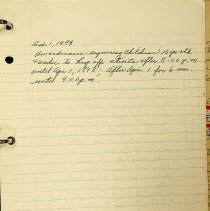 Feb 1, 1898
An ordinance requiring children 16 yrs old
+ under to keep off streets after 8:00 p.m.
until Apr 1, 1898; After Apr. 1 for 6 mo
until 9:00 p.m.